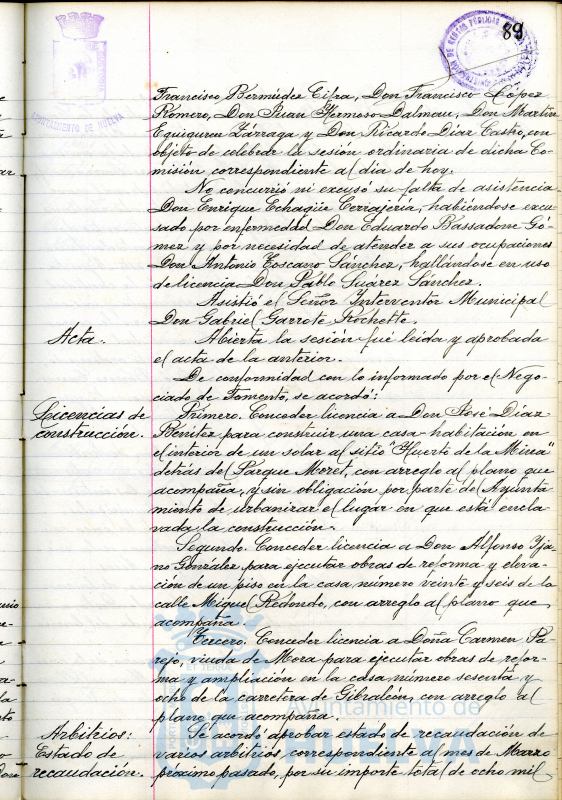 89
AYUNTAMIENTO DE HUELVA
Francisco Bermúdez Cifra, Don Francisco López
Romero, Don Juan Hermoso Dalmau, Don Martín
Eguiguren Zárraga y Don Ricardo Díaz Castro, con
objeto de celebrar la sesión ordinaria de dicha Co-
misión correspondiente al día de hoy.
No concurrió ni excusó su falta de asistencia
Don Enrique Echagüe Cerrajería, habiéndose excu-
sado por enfermedad Don Eduardo Bassadone Gó-
mez y por necesidad de atender a sus ocupaciones
Don Antonio Toscano Sánchez, hallándose en uso
de licencia Don Pablo Suárez Sánchez.
Asistió el Señor Interventor Municipal
Don Gabriel Garrote Rochette.
Acta.
Abierta la sesión fué leída y aprobada
el acta de la anterior.
De conformidad con lo informado por el Nego-
ciado de Fomento, se acordó:
Licencias de
construcción.
Primero. Conceder licencia a Don José Díaz
Benítez para construir una casa habitación en
el interior de un solar al sitio "Huerto de la Mina"
detrás del Parque Moret, con arreglo al plano que
acompaña, y sin obligación por parte del Ayunta-
miento de urbanizar el lugar en que está encla-
vada la construcción.
Segundo. Conceder licencia a Don Alfonso Yja-
no González para ejecutar obras de reforma y eleva-
ción de un piso en la casa número veinte y seis de la
calle Miguel Redondo, con arreglo al plano que
acompaña.
Tercero. Conceder licencia a Doña Carmen Pa-
rejo, viuda de Mora para ejecutar obras de refor-
ma y ampliación en la casa número sesenta y
ocho de la carretera de Gibraleón, con arreglo al
plano que acompaña.
Arbitrios:
Estado de
recaudación.
Se acordó aprobar estado de recaudación de
varios arbitrios correspondiente al mes de Marzo
próximo pasado, por su importe total de ocho mil
Ayuntamiento de
HUELVA